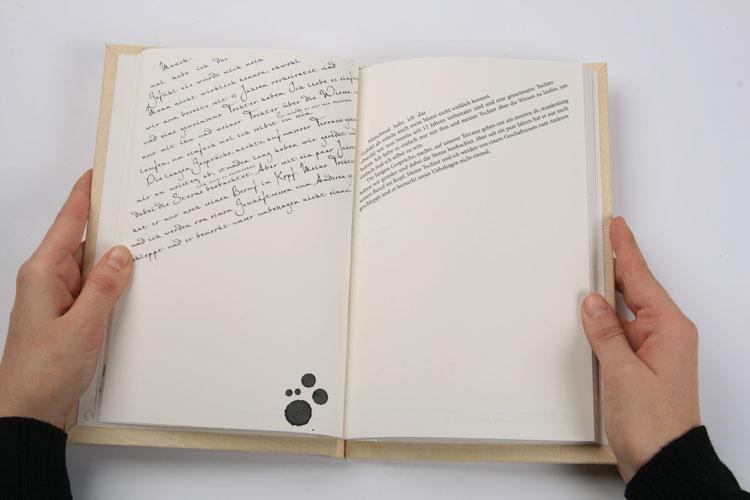 Manch-
mal habe ich das
Gefühl als würde mich mein
Mann nicht wirklich kennen, obwohl
wir nun bereits seit 12 Jahren verheiratet sind
und eine gemeinsame Tochter haben. Ich liebe es einfa
nur mit ihm und meiner Tochter über die Wiesen
laufen, um einfach mal ich selbst zu sein.
Die langen Gespräche, nachts, auf unserer Terrasse
mir am meisten ab, stunden lang haben wir geredet
dabei die Sterne beobachtet. Aber seit ein paar Jahren
hat er nur noch seinen Beruf im Kopf. Meine Tochter
und ich werden von einem Geschäftsessen zum Anderen
chleppt und er bemerkt unser unbehagen nicht einmal
Manchmal habe ich das
Gefühl als würde mich mein Mann nicht wirklich kennen,
obwohl wir nun bereits seit 12 Jahren verheiratet und und eine gemeinsame Tochter
haben. Ich liebe es einfach nur mit ihm und meiner Tochter über die Wiesen zu laufen, um
einfach mal ich selbst zu sein.
Die langen Gespräche, nachts, auf unserer Terrasse gehen mir am meisten ab, stundenlang
haben wir geredet und dabei die Sterne beobachtet. Aber seit ein paar Jahren hat er nur noch
seinen Beruf im Kopf. Meine Tochter und ich werden von einem Geschäftsessen zum Anderen
geschleppt und er bemerkt unser Unbehagen nicht einmal.